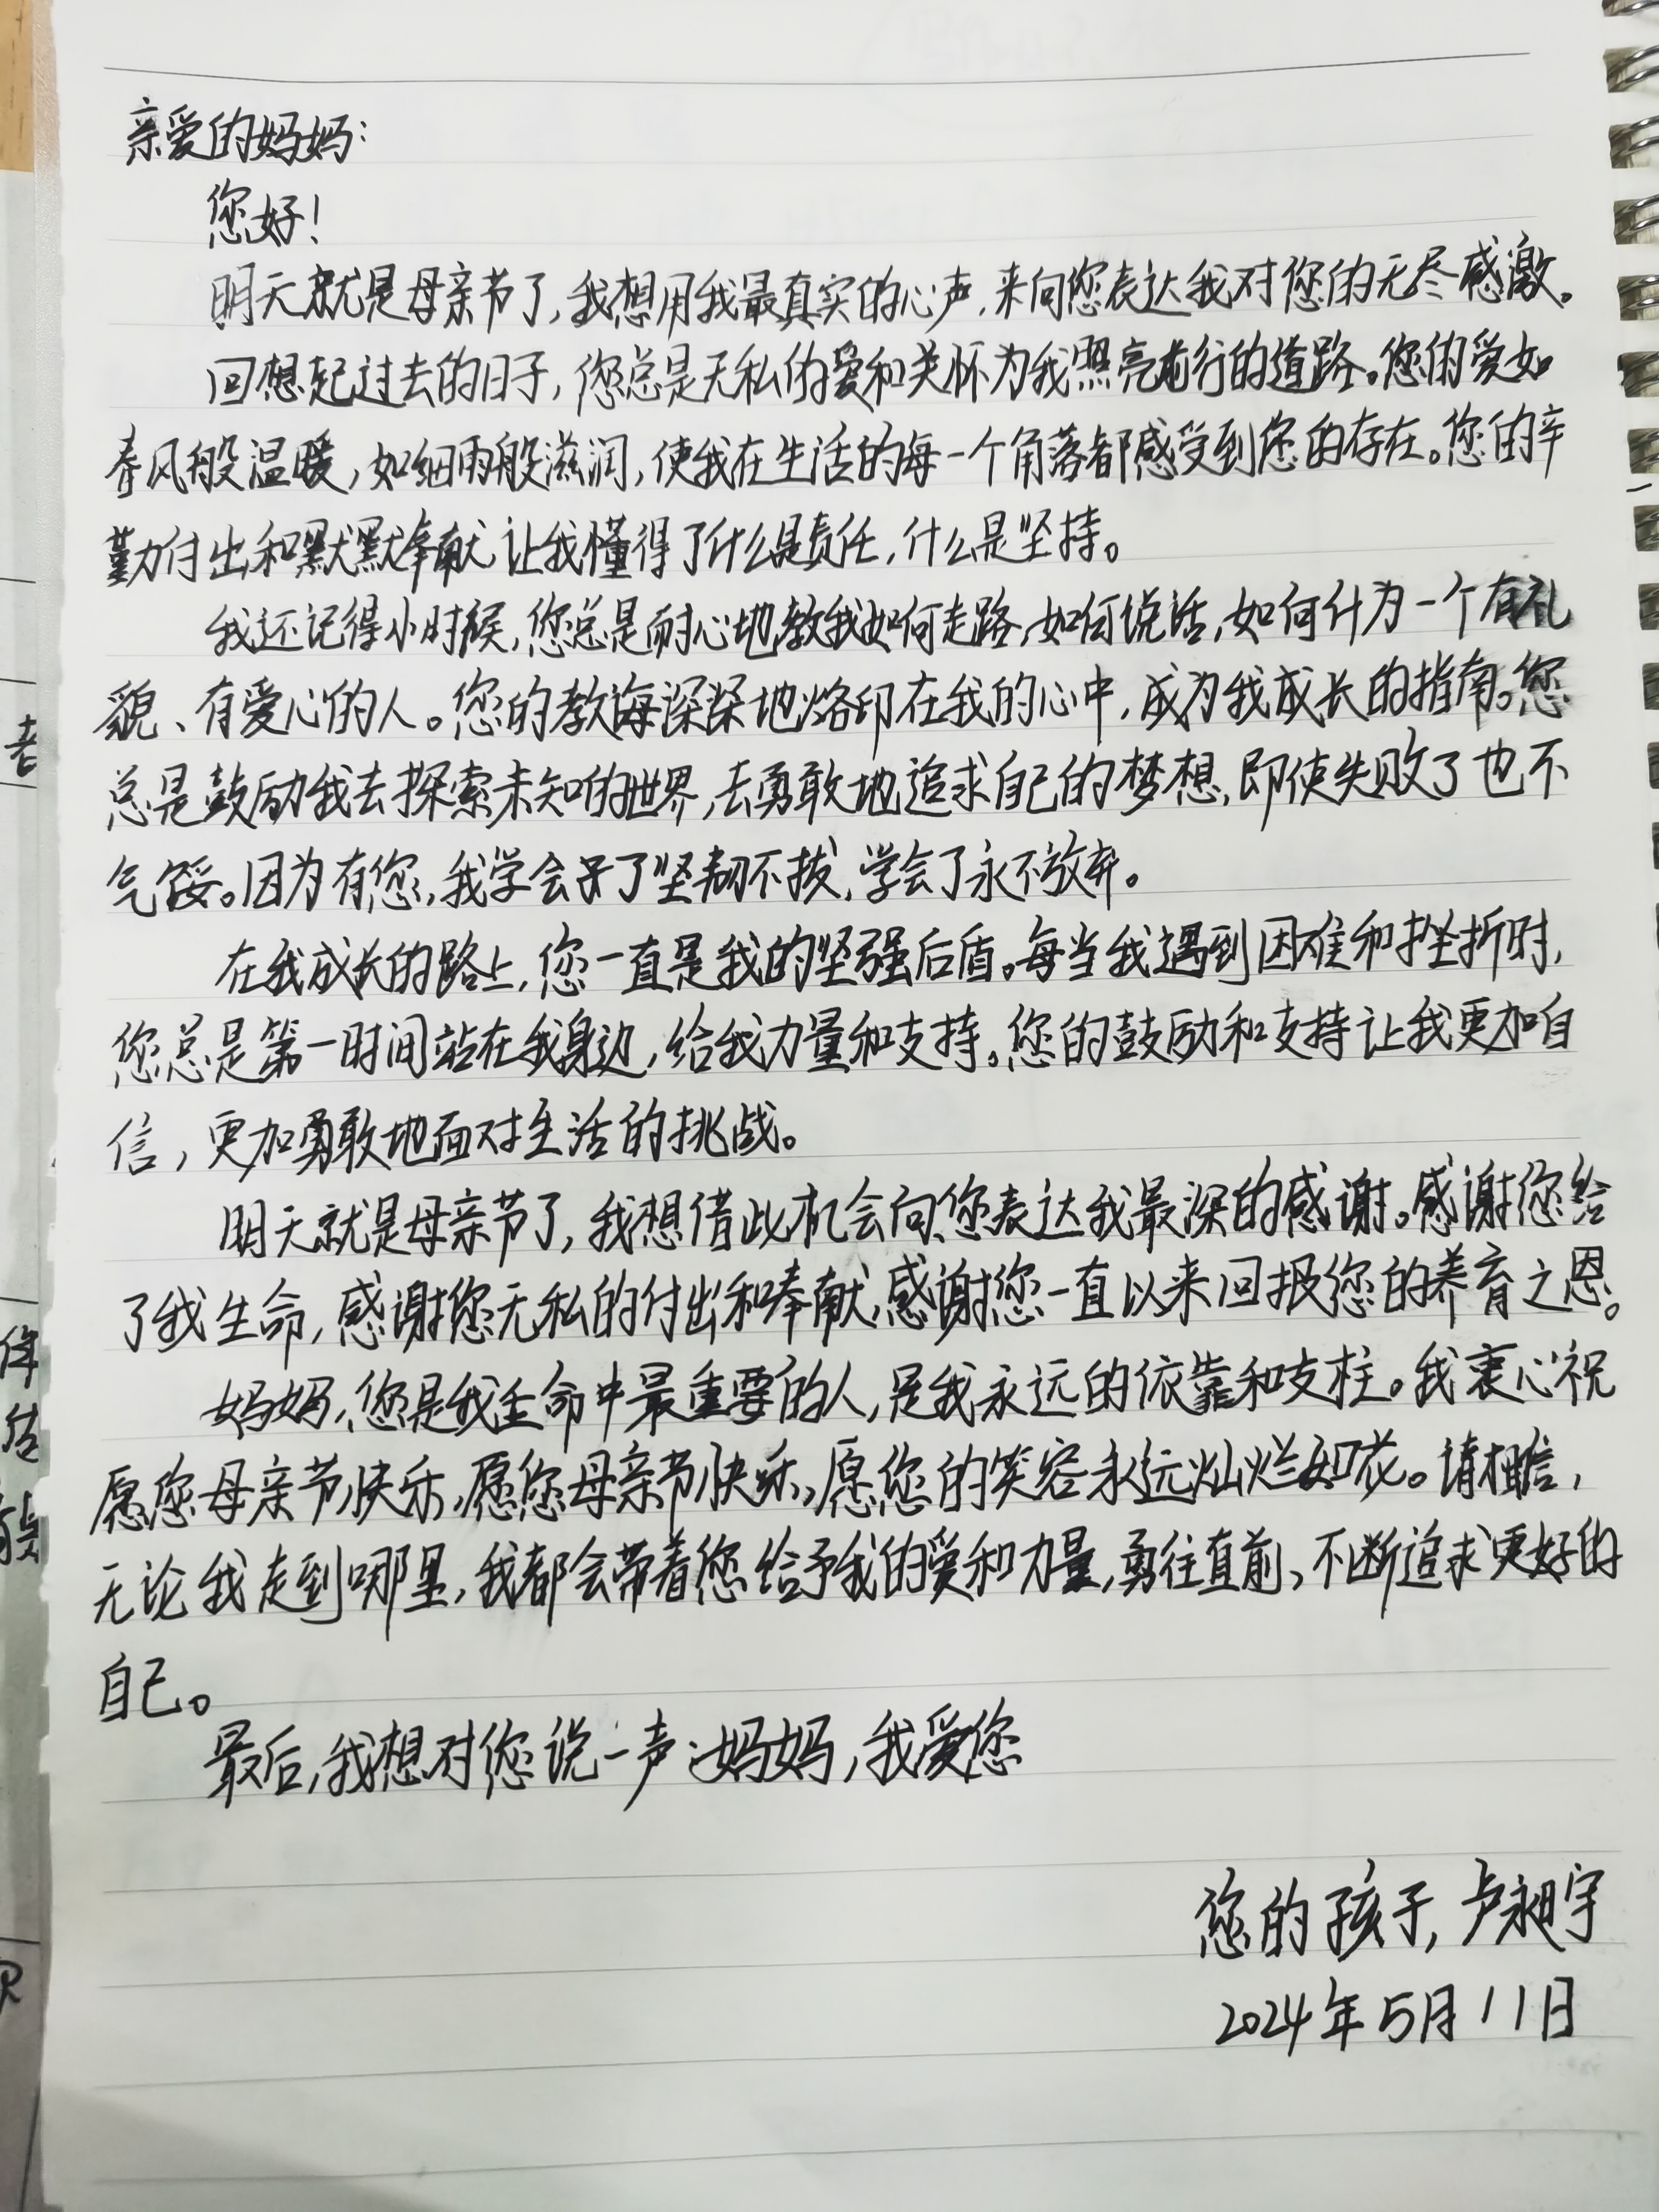 亲爱的妈妈：
您好！
明天就是母亲节了，我想用我最真实的心声，来向您表达我对您的无尽感激。
回想起过去的日子，您总是无私的爱和关怀为我照亮前行的道路。您的爱如
春风般温暖，如细雨般滋润，使我在生活的每一个角落都感受到您的存在。您的辛
勤付出和默默奉献 让我懂得了什么是责任，什么是坚持。
我还记得小时候，您总是耐心地教我如何走路，如何说话，如何什为一个有礼
貌、有爱心的人。您的教诲深深地烙印在我的心中，成为我成长的指南。您
总是鼓励我去探索未知的世界，去勇敢地追求自己的梦想，即使失败了也不
气馁。因为有您，我学会了坚韧不拔，学会了永不放弃。
在我成长的路上，您一直是我的坚强后盾。每当我遇到困难和挫折时，
您总是第一时间站在我身边，给我力量和支持。您的鼓励和支持让我更加自
信，更加勇敢地面对生活的挑战。
明天就是母亲节了，我想借此机会向您表达我最深的感谢。感谢您给
了我生命，感谢您无私的付出和奉献，感谢您一直以来回报您的养育之恩。
妈妈，您是我生命中最重要的人，是我永远的依靠和支柱。我衷心祝
愿您母亲节快乐，愿您母亲节快乐，愿您的笑容永远灿烂如花。请相信，
无论我走到哪里，我都会带着您给予我的爱和力量，勇往直前、不断追求更好的
自己。
最后，我想对您说一声：妈妈，我爱您
您的孩子，卢昶宇
2024年5月11日
老